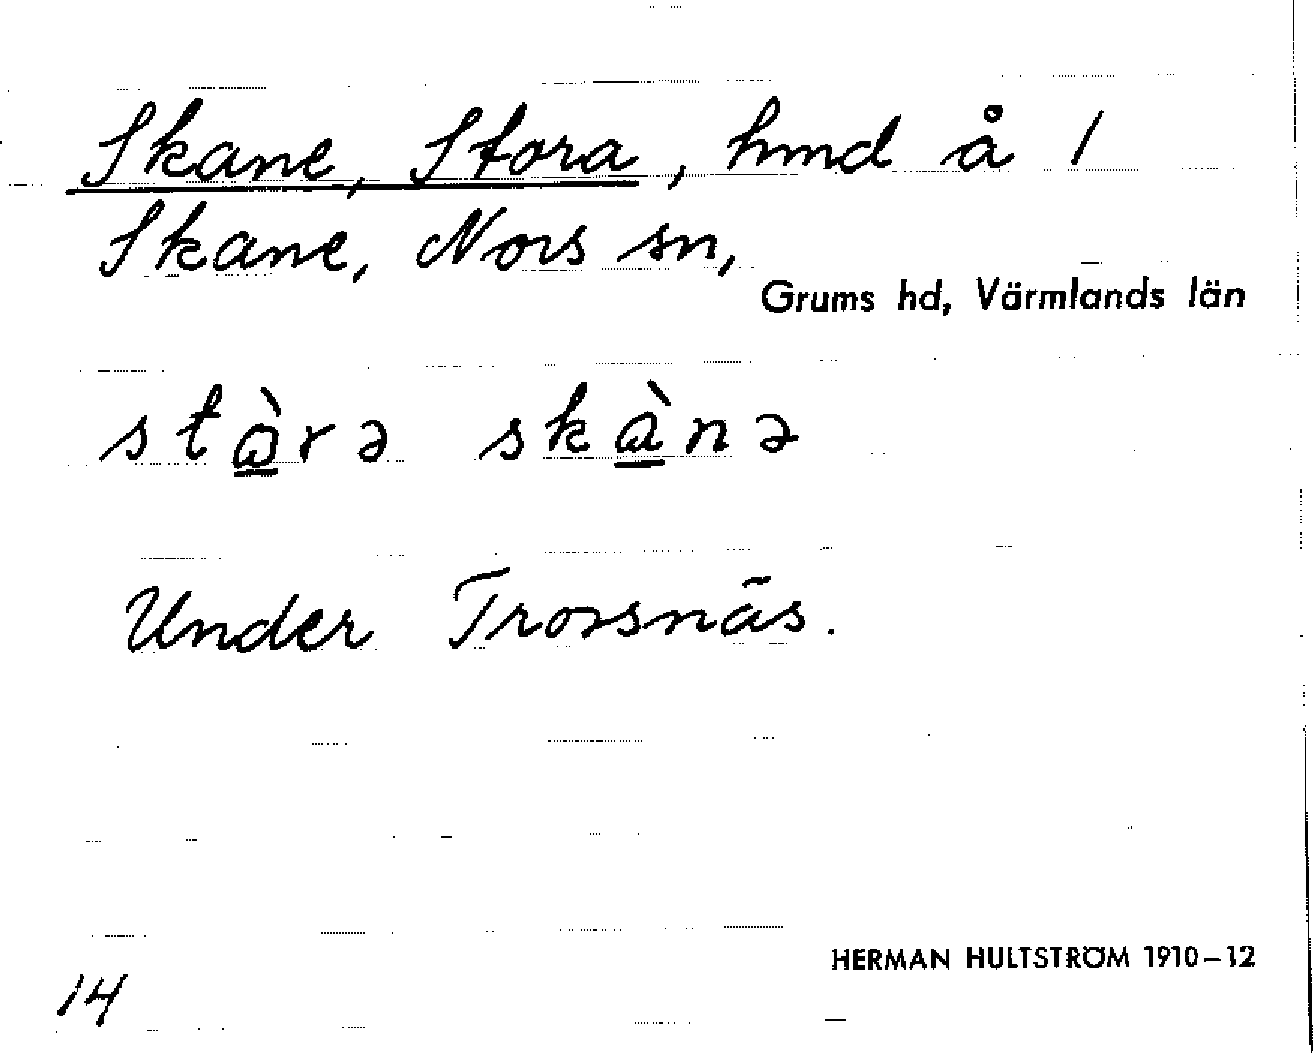 Skane, Stora, hmd å 1
Skane, Nors sn,
Grums hd, Värmlands län
stòrə skànə
Under Trossnäs.
14
HERMAN HULTSTRÖM 1910–12